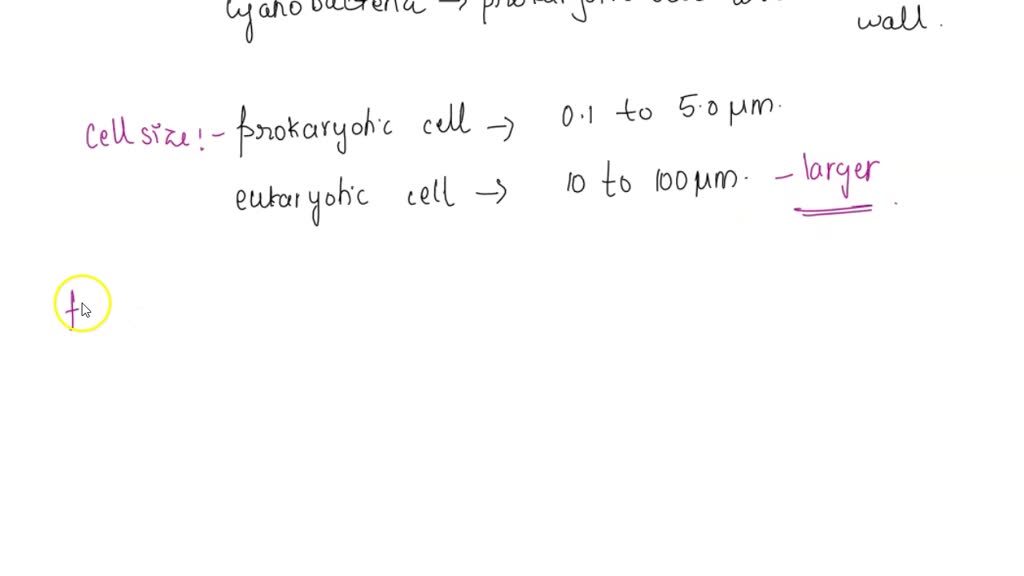 cyanobacteria → prokaryotic
wall.
Cell size:- prokaryotic cell → 0.1 to 5.0 μm.
eukaryotic cell → 10 to 100 μm. - larger